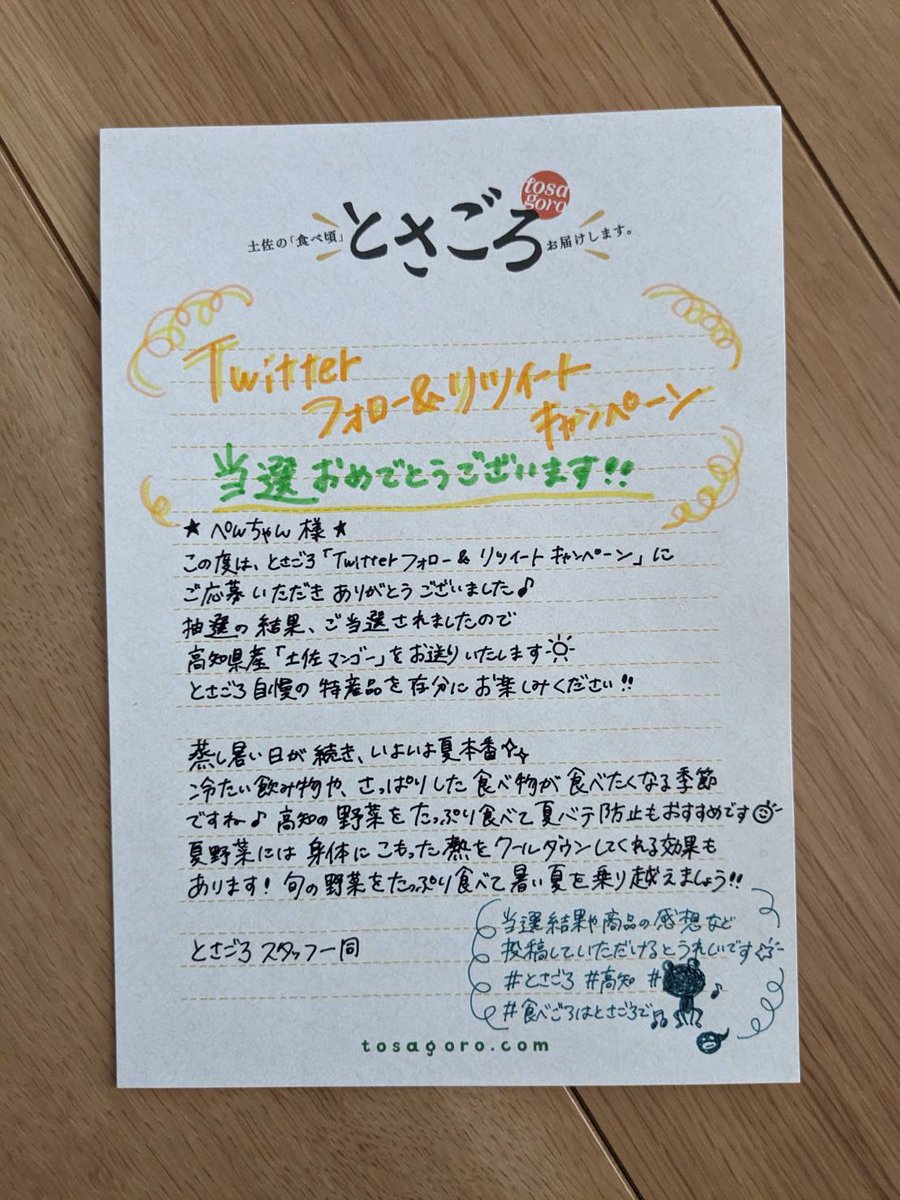 tosa
goro
土佐の「食べ頃」とさごろお届けします。
Twitter
フォロー&リツイート
キャンペーン
当選おめでとうございます!!
★ ぺんちゃん様 ★
この度は、とさごろ「Twitterフォロー& リツイートキャンペーン」に
ご応募いただきありがとうございました♪
抽選の結果、ご当選されましたので
高知県産「土佐マンゴー」をお送りいたします☼
とさごろ自慢の特産品を存分にお楽しみください!!
蒸し暑い日が続き、いよいよ夏本番✧
冷たい飲み物や、さっぱりした食べ物が食べたくなる季節
ですね♪ 高知の野菜をたっぷり食べて夏バテ防止もおすすめです
夏野菜には身体にこもった熱をクールダウンしてくれる効果も
あります! 旬の野菜をたっぷり食べて暑い夏を乗り越えましょう!!
とさごろスタッフ一同
当選結果や商品の感想など
投稿していただけるとうれしいです
#とさごろ #高知 #
#食べごろはとさごろで♪
tosagoro.com